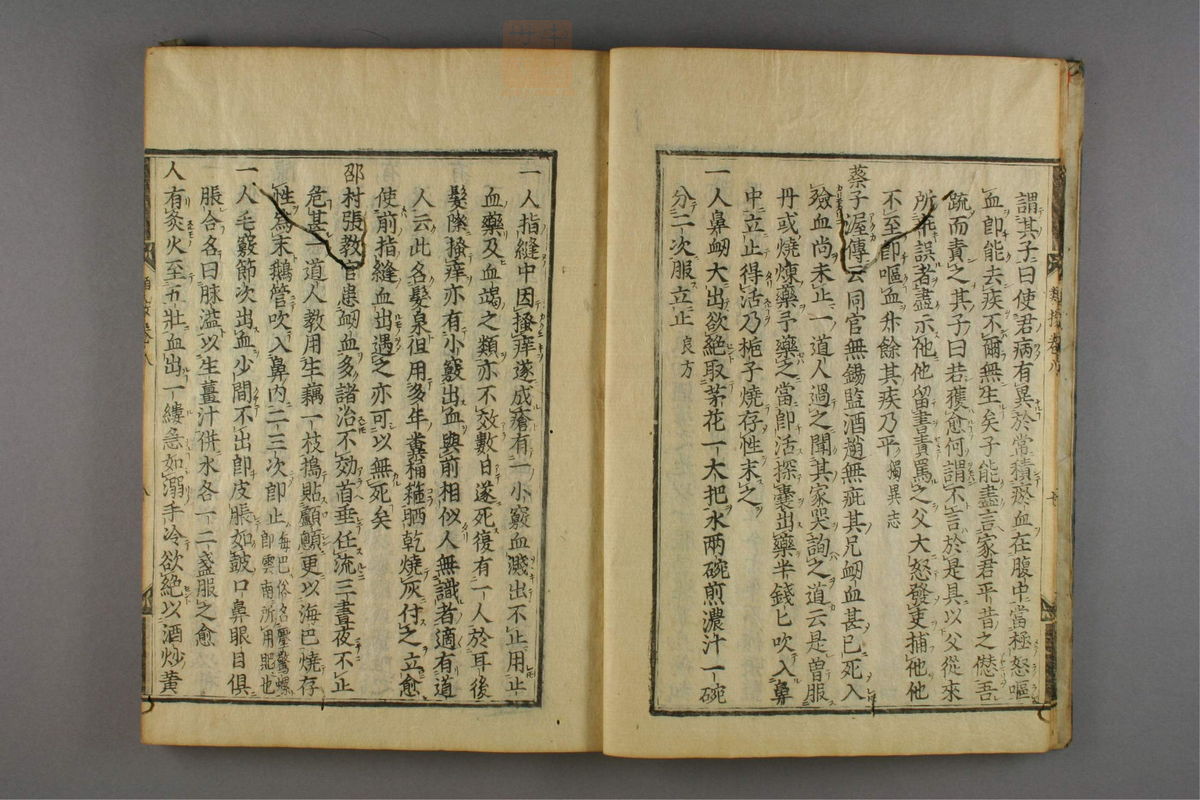 謂其子曰使君病有異於常積瘀血在腹中當極怒嘔
血卽能去疾不爾無生矣子能盡言家君平昔之愆吾
疏而責之其子曰若獲愈何謂不言於是具以父從來
所乖誤者盡示他他留書責罵之父大怒發吏捕他他
不至卽嘔血升餘其疾乃平 獨異志
蔡子渥傳云同官無錫監酒趙無疵其兄衂血甚已死入
殮血尚未止一道人過之聞其家哭詢之道云是曽服
丹或燒煉藥予藥之當卽活探囊出藥半錢匕吹入鼻
中立止得活乃梔子燒存性末之
一人鼻衂大出欲絶取茅花一大把水兩碗煎濃汁一碗
分二次服立止 良方
一人指縫中因搔痒遂成瘡有一小竅血濺出不止用止
血藥及血竭之類亦不效數日遂死復有一人於耳後
髮際搔痒亦有小竅出血與前相似人無識者適有道
人云此名髮泉但用多年糞桶箍晒乾燒灰付之立愈
使前指縫血出遇之亦可以無死矣
邵村張教官患衂血多諸治不効首垂任流三晝夜不止
危甚一道人教用生藕一枝搗貼顱顖更以海巴燒存
性爲末鵝管吹入鼻内二三次卽止 海巴俗名壓驚螺
卽雲南所用肥也
一人毛竅節次出血少間不出卽皮脹如鼓口鼻眼目俱
脹合名曰脉溢以生薑汁併水各一二盞服之愈
人有灸火至五壯血出一縷急如溺手冷欲絶以酒炒黄